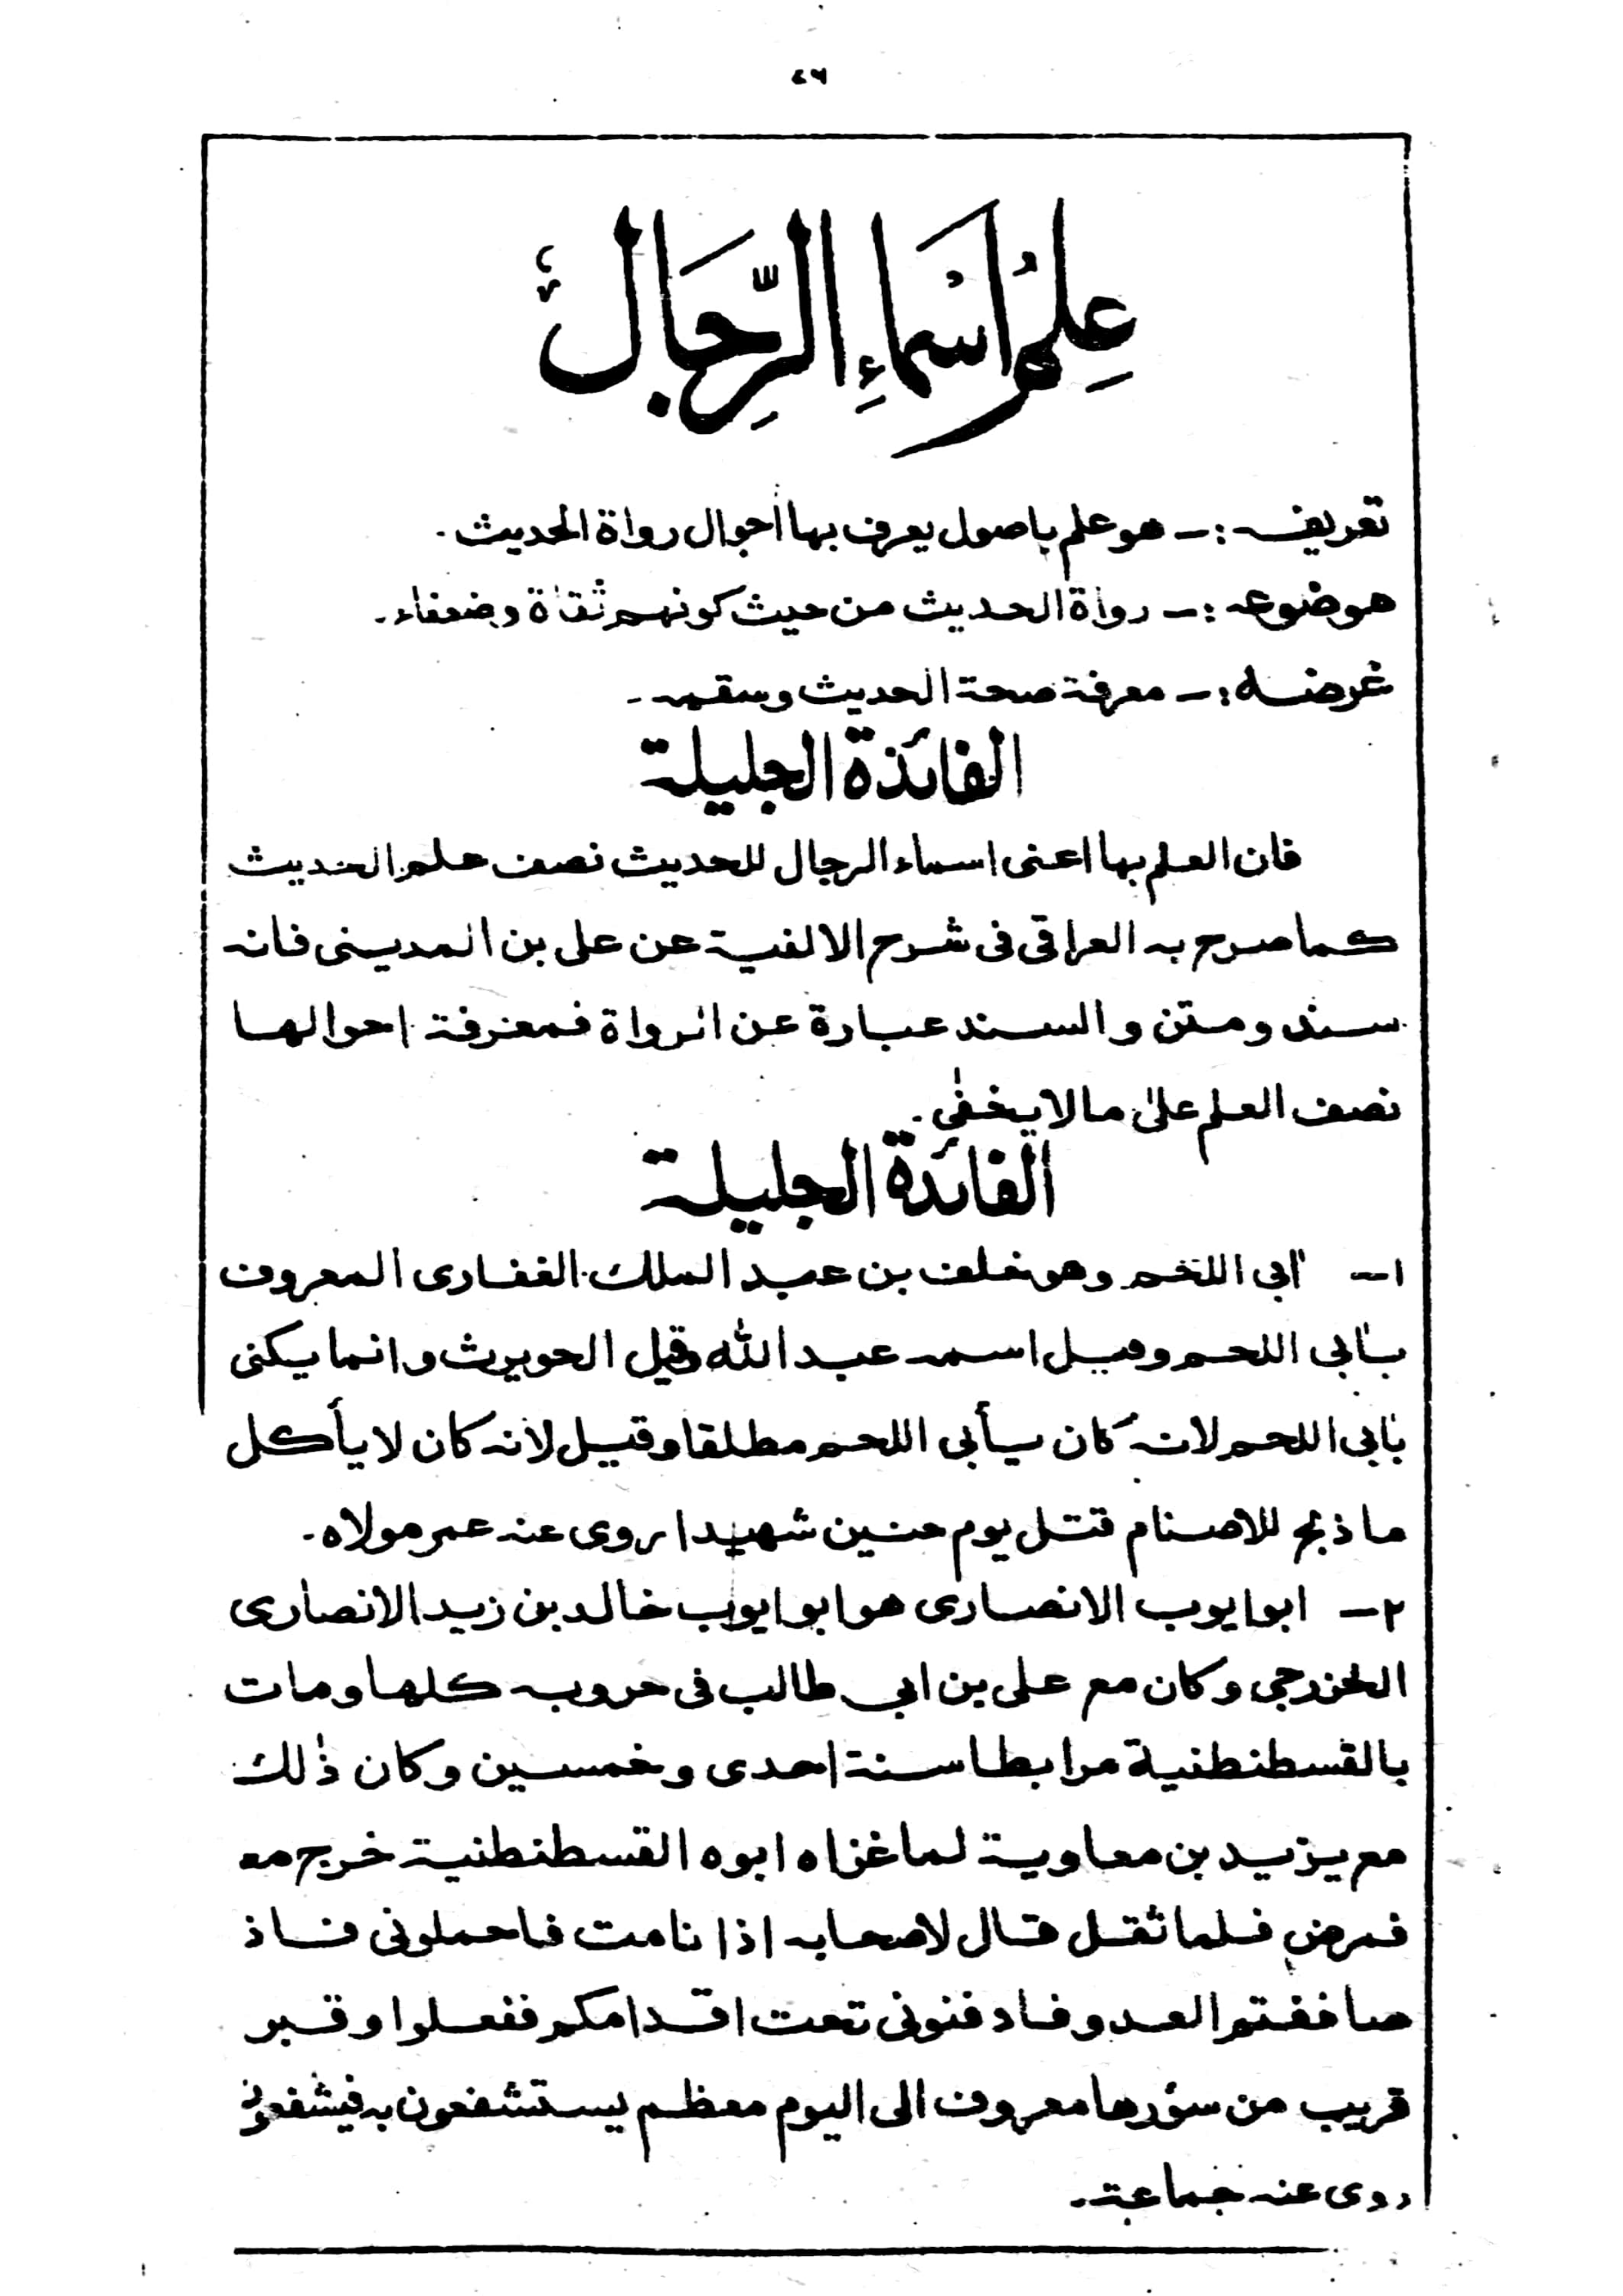 ٤٦
عِلمُ اَسْمَاءِ الرِّجَال
تعريفه :ـ هو علم باصول يعرف بها احوال رواة الحديث.
موضوعه :ـ رواة الحديث من حيث كونهم ثقاة وضعفاء۔
غرضه :ـ معرفة صحة الحديث وسقمه۔
الفائدة الجليلة
فان العلم بها اعنى اسماء الرجال للحديث نصف علم الحديث
كما صرح به العراقى فى شرح الالفية عن على بن المدينى فانه
سند ومتن والسند عبارة عن الرواة فمعرفة احوالها
نصف العلم علىٰ مالا يخفٰى.
الفائدة الجليلة
١ــ اٰبى اللحم وهو خلف بن عبد الملك الغفارى المعروف
بـاٰبى اللحم وقيل اسمه عبد الله وقيل الحويرث وانما يكنى
باٰبى اللحم لانه كان يأبى اللحم مطلقا وقيل لانه كان لا يأكل
ما ذبح للاصنام قتل يوم حنين شهيدا روى عنه عمر مولاه۔
٢ــ ابوايوب الانصارى هو ابوايوب خالد بن زيد الانصارى
الخزرجى وكان مع على بن ابى طالب فى حروبه كلها ومات
بالقسطنطنية مرابطا سنة احدى وخمسين وكان ذٰلك
مع يزيد بن معاوية لما غزاه ابوه القسطنطنية خرج معه
فمرض فلما ثقل قال لاصحابه اذا نامت فاحملونى فاذ
صاففتم العدو فادفنونى تحت اقدامكم ففعلوا وقبر
قريب من سؤرها معروف الى اليوم معظم يستشفعون به فيشفعون
روى عنه جماعة۔